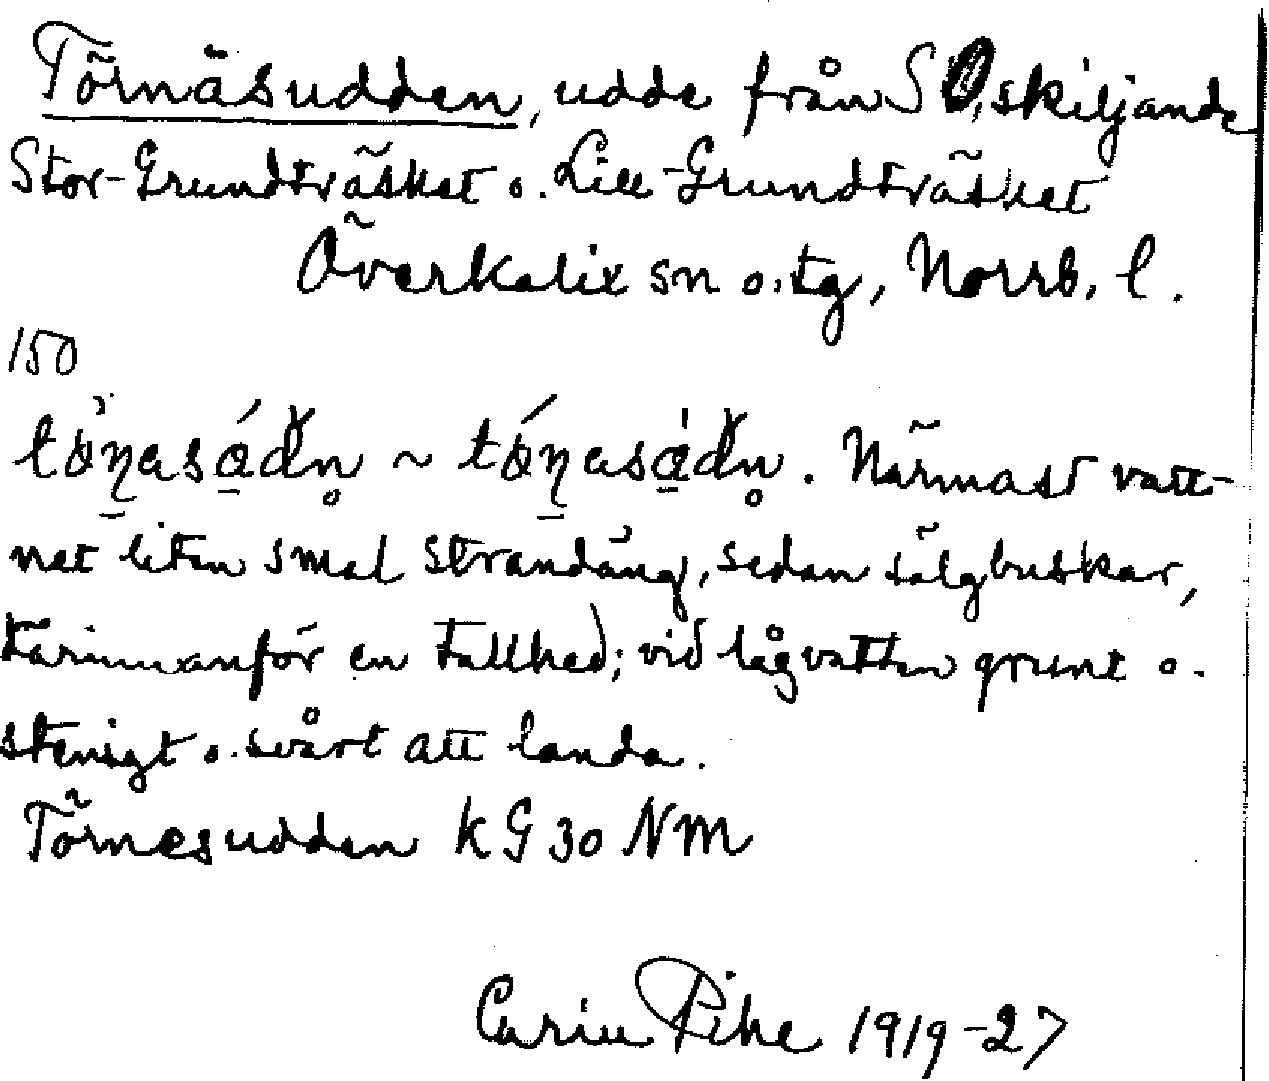 Törnäsudden, udde från SO, skiljande
Stor-Grundträsket o. Lill-Grundträsket
Överkalix sn o. tg, Norrb. l.
150
~ . Närmast vatt-
net liten smal strandäng, sedan sälgbuskar,
därinnanför en tallhed; vid lågvatten grunt o.
stenigt o. svårt att landa.
Törnesudden KG 30 NM
Carin Pihl 1919-27